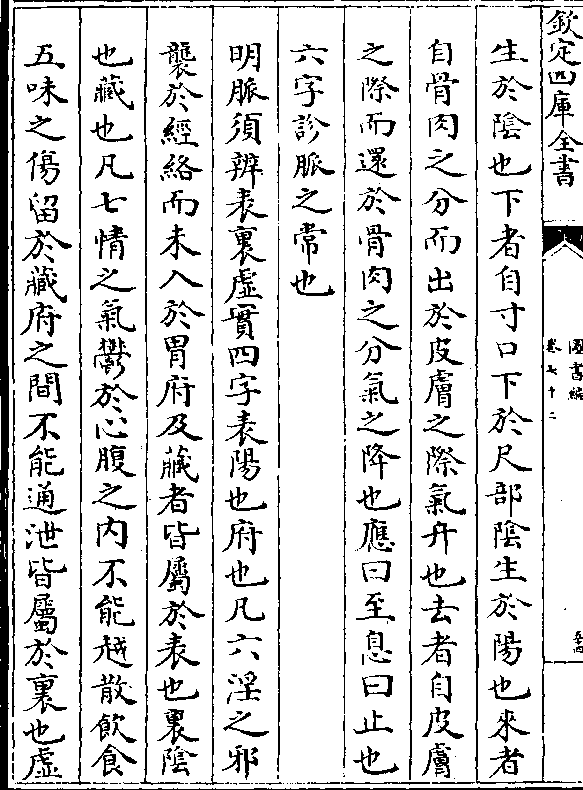 欽定四庫全書
圖書編
卷七十二
生於陰也下者自寸口下於尺部陰生於陽也來者
自骨肉之分而出於皮膚之際氣升也去者自皮膚
之際而還於骨肉之分氣之降也應曰至息曰止也
六字診脈之常也
明脈須辨表裏虛實四字表陽也府也凡六淫之邪
襲於經絡而未入於胃府及藏者皆屬於表也裏陰
也藏也凡七情之氣鬱於心腹之内不能越散飲食
五味之傷留於藏府之間不能通泄皆屬於裏也虛